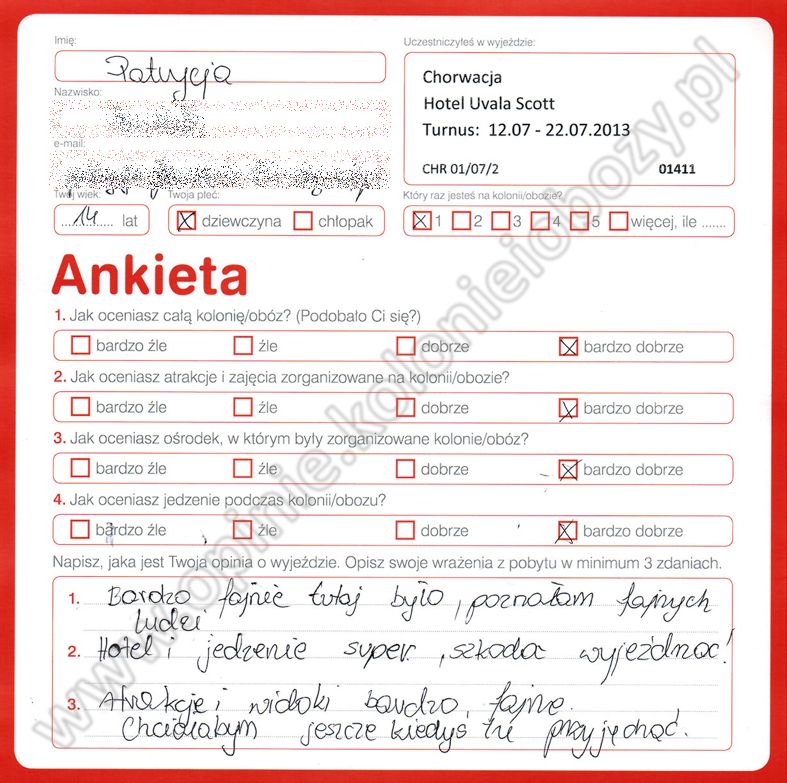 Imię:
Patrycja
Nazwisko:
e-mail:
Twój wiek:
14 lat
Twoja płeć:
dziewczyna chłopak
Uczestniczyłeś w wyjeździe:
Chorwacja
Hotel Uvala Scott
Turnus: 12.07 - 22.07.2013
CHR 01/07/2 01411
Który raz jesteś na kolonii/obozie?
1 2 3 4 5 więcej, ile .......
Ankieta
1. Jak oceniasz całą kolonię/obóz? (Podobało Ci się?)
bardzo źle źle dobrze bardzo dobrze
2. Jak oceniasz atrakcje i zajęcia zorganizowane na kolonii/obozie?
bardzo źle źle dobrze bardzo dobrze
3. Jak oceniasz ośrodek, w którym były zorganizowane kolonie/obóz?
bardzo źle źle dobrze bardzo dobrze
4. Jak oceniasz jedzenie podczas kolonii/obozu?
bardzo źle źle dobrze bardzo dobrze
Napisz, jaka jest Twoja opinia o wyjeździe. Opisz swoje wrażenia z pobytu w minimum 3 zdaniach.
1. Bardzo fajnie tutaj było, poznałam fajnych
ludzi
2. Hotel i jedzenie super, szkoda wyjeżdżać!
3. Atrakcje i widoki bardzo fajne.
Chciałabym jeszcze kiedyś tu przyjechać.
www.opinie.kolonieiobozy.pl